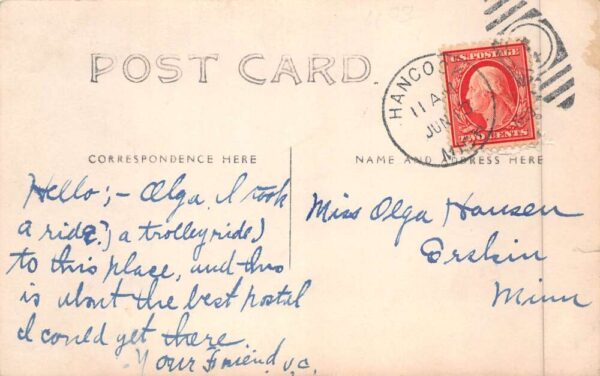 POST CARD.
U.S. POSTAGE
TWO CENTS
HANCO
11 A
JUN
CORRESPONDENCE HERE
NAME AND ADDRESS HERE
Hello;- Olga, I took
a ride?) a trolley ride)
to this place, and this
is about the best postal
I could get there.
Your Friend V.C.
Miss Olga Hansen
Erskin
Minn